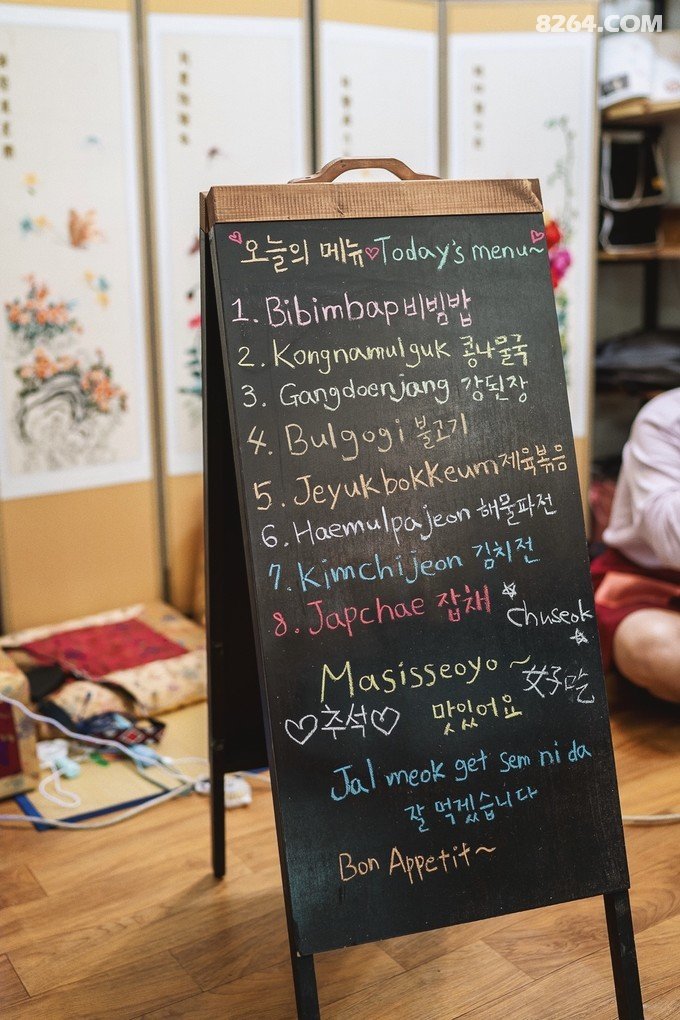 8264.COM
♡오늘의 메뉴♡Today's menu~♡
1. Bibimbap 비빔밥
2. Kongnamulguk 콩나물국
3. Gangdoenjang 강된장
4. Bulgogi 불고기
5. Jeyukbokkeum 제육볶음
6. Haemulpajeon 해물파전
7. Kimchijeon 김치전
8. Japchae 잡채
☆Chuseok☆
Masisseoyo~
♡추석♡ 맛있어요
Jal meok get sem ni da
잘 먹겠습니다
Bon Appetit~